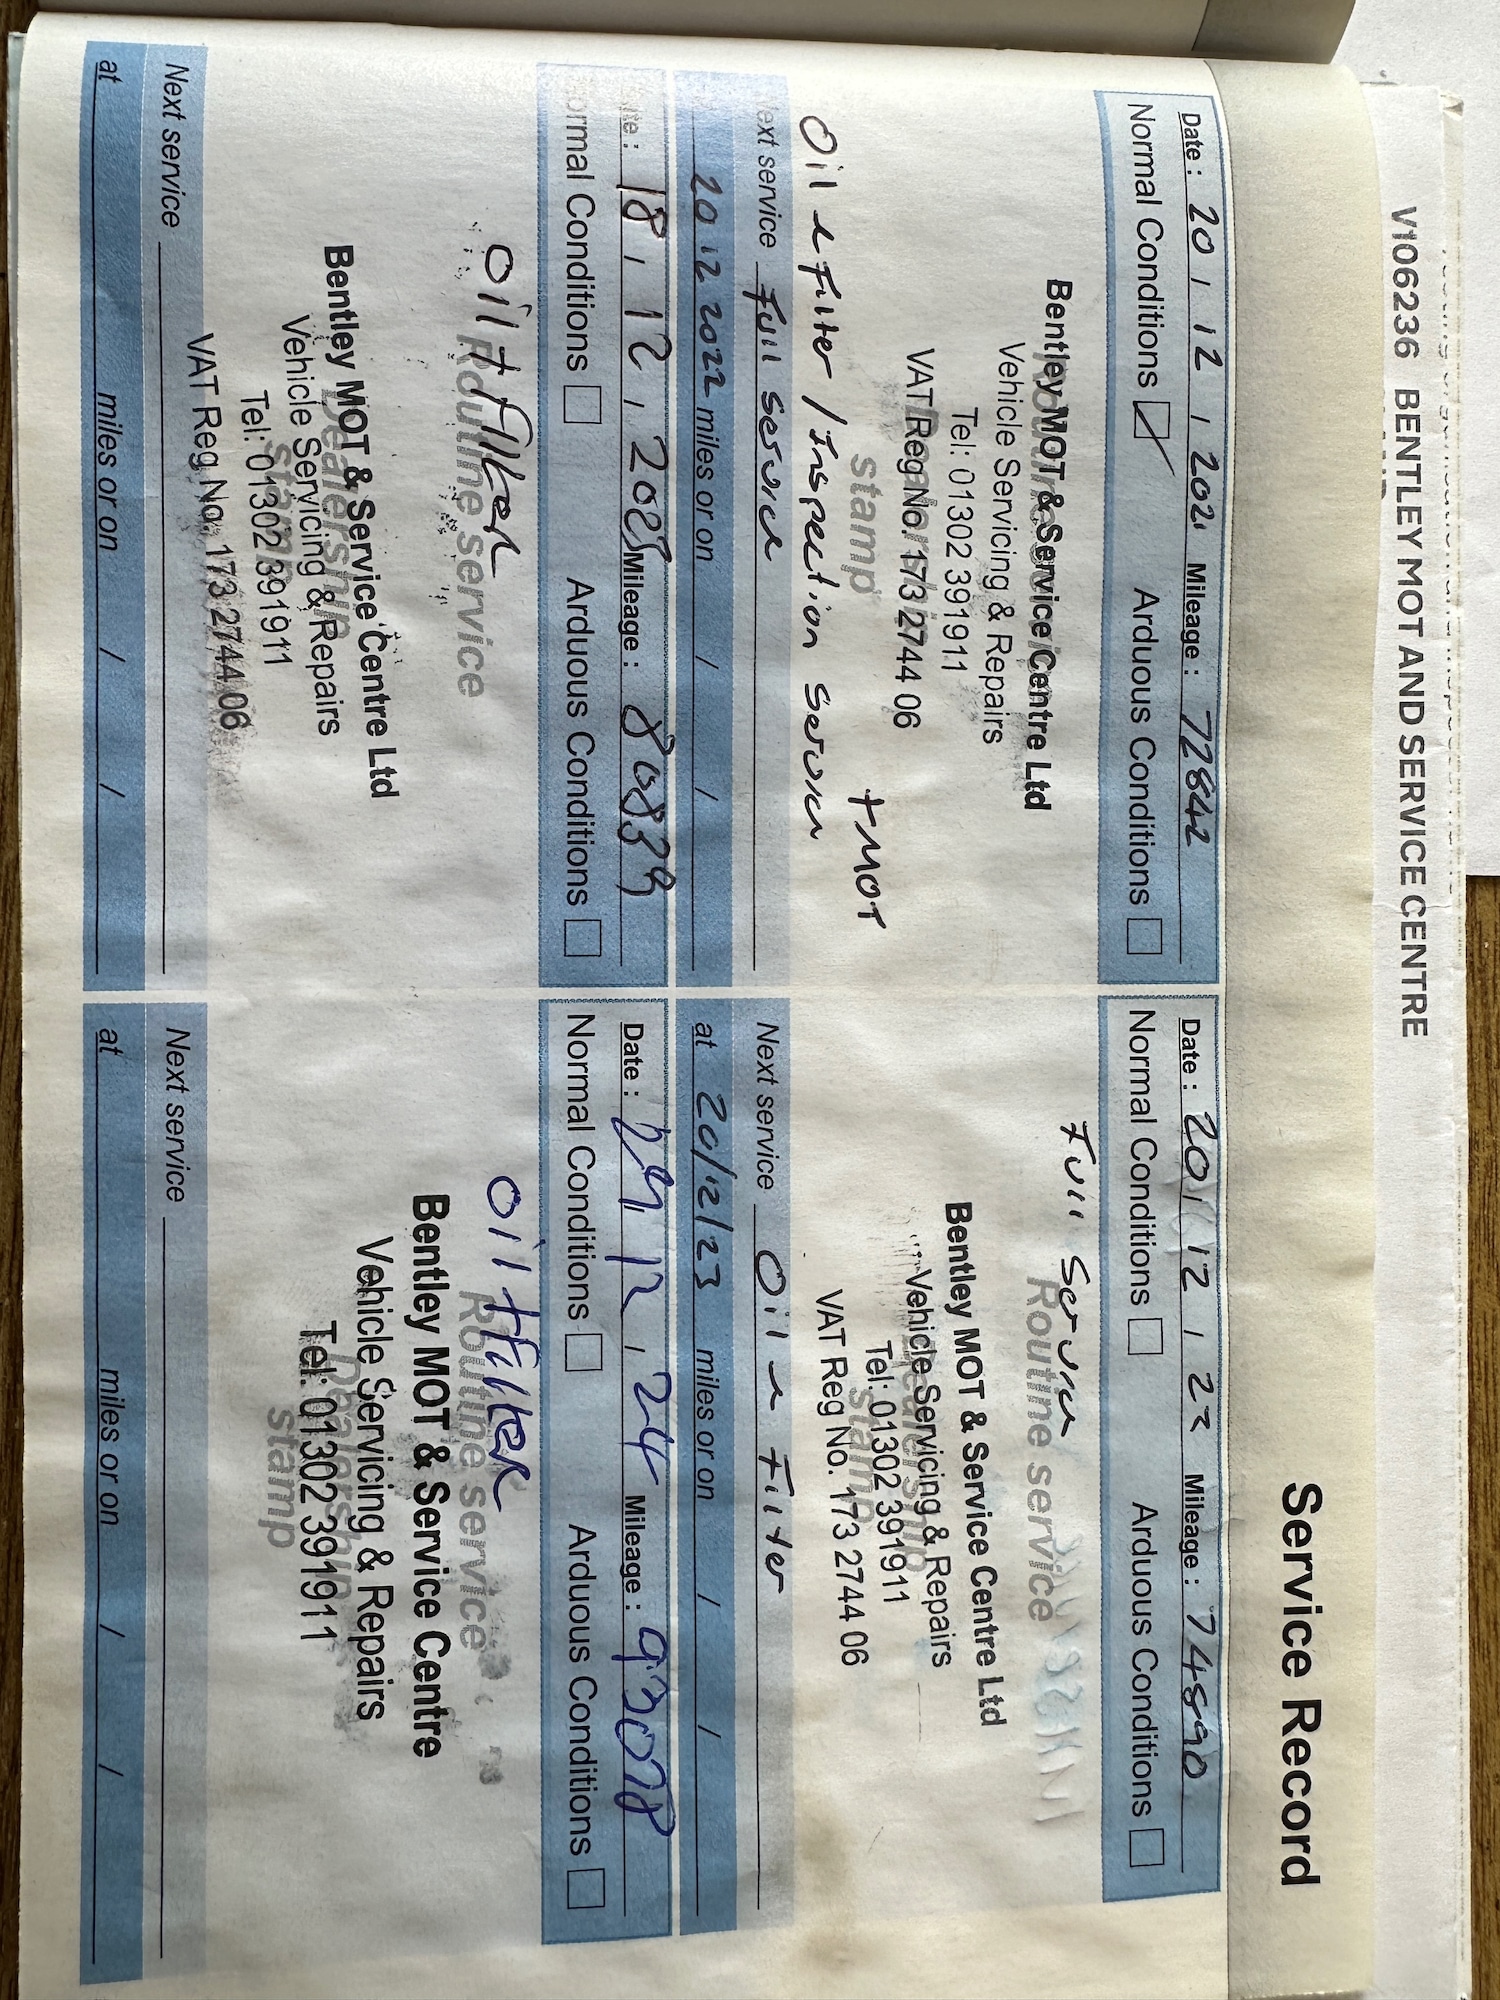 V106236 BENTLEY MOT AND SERVICE CENTRE
Service Record
Date: 20 / 12 / 2021 Mileage: 72842
Normal Conditions Arduous Conditions
Routine service
Bentley MOT & Service Centre Ltd
Vehicle Servicing & Repairs
Tel: 01302 391911
Dealership
VAT Reg No. 173 2744 06
stamp
+ MOT
Oil & Filter / Inspection Service
Next service Full Service
20 12 2022 miles or on / /
Date: 20 / 12 / 22 Mileage: 74890
Normal Conditions Arduous Conditions
Full Service
Routine service
Bentley MOT & Service Centre Ltd
Vehicle Servicing & Repairs
Dealership
Tel: 01302 391911
stamp
VAT Reg No. 173 2744 06
Next service Oil & Filter
at 20/12/23 miles or on / /
Date: 18 / 12 / 2023 Mileage: 80839
Normal Conditions Arduous Conditions
Oil + filter
Routine service
Bentley MOT & Service Centre Ltd
Dealership
Vehicle Servicing & Repairs
stamp
Tel: 01302 391911
VAT Reg No. 173 2744 06
Next service
at miles or on / /
Date: / 12 / 24 Mileage: 93078
Normal Conditions Arduous Conditions
Oil + filter
Routine service
Bentley MOT & Service Centre
Vehicle Servicing & Repairs
Dealership
Tel: 01302 391911
stamp
Next service
at miles or on / /